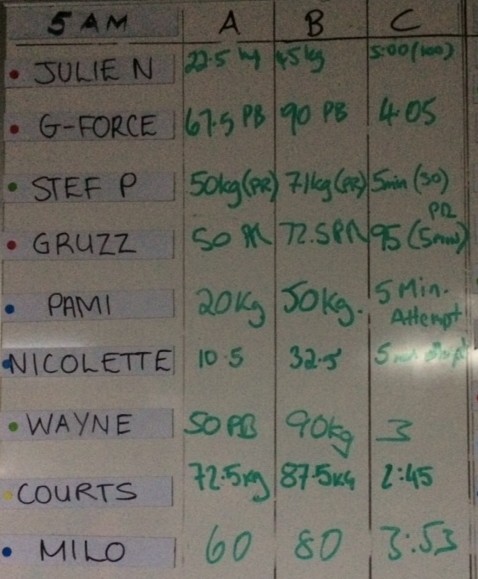 5 AM A B C
JULIE N 22.5 kg 45kg 5:00(100)
G-FORCE 67.5 PB 90 PB 4:05
STEF P 50kg(PR) 71kg(PR) 5min (30)
PR
GRUZZ 50 PR 72.5PR 95 (5min)
PAMI 20Kg 50kg. 5 Min.
Attempt
NICOLETTE 10.5 32.5 5
WAYNE 50 PB 90kg 3
COURTS 72.5kg 87.5KG 2:45
MILO 60 80 3:53